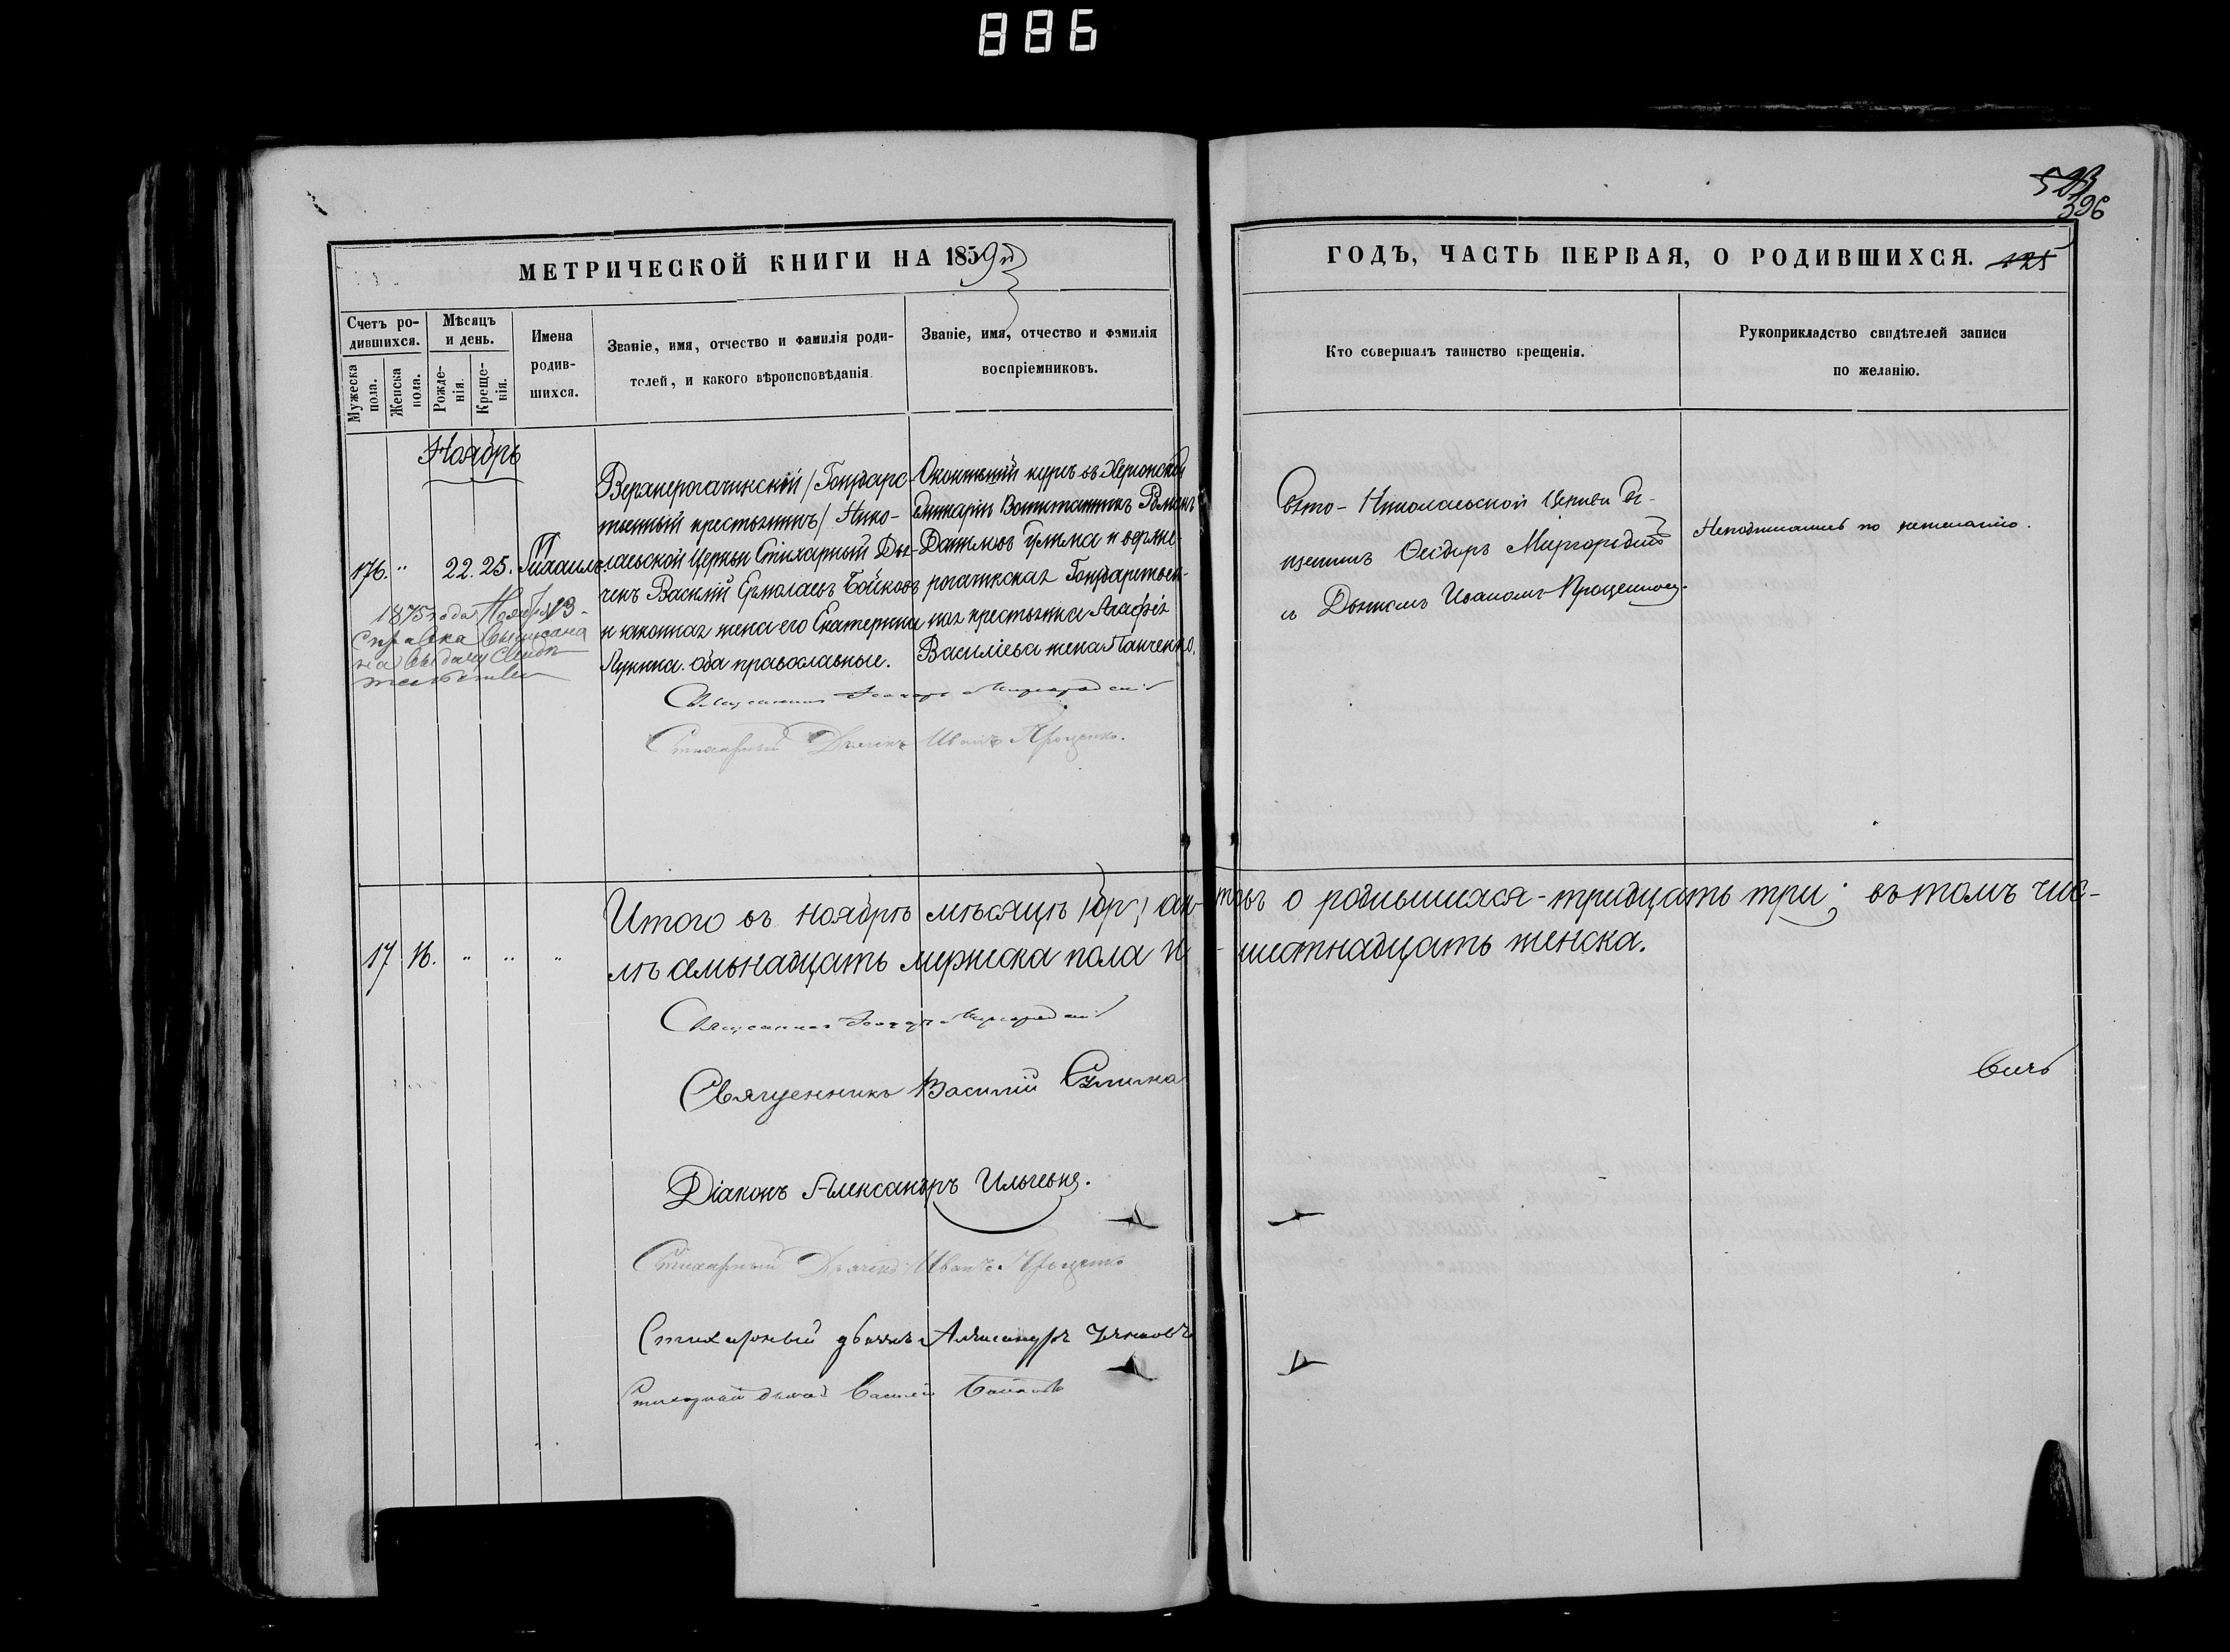 886
523
396
МЕТРИЧЕСКОЙ КНИГИ НА 1859й
ГОДЪ, ЧАСТЬ ПЕРВАЯ, О РОДИВШИХСЯ. 125
Счетъ ро-
дившихся.
Мужеска
пола.
Женска
пола.
Мѣсяцъ
и день.
Рожде-
нія.
Креще-
нія.
Имена
родив-
шихся.
Званіе, имя, отчество и фамилія роди-
телей, и какого вѣроисповѣданія
Званіе, имя, отчество и фамилія
воспріемниковъ.
Кто совершалъ таинство крещенія.
Рукоприкладство свидѣтелей записи
по желанію.
Ноябрь
176. " 22. 25. Михаилъ
1875 года Ноября 13
Справка выписана
на выдачу свидѣ
тельства
Верхнерогачинскій /Государс-
твенный крестьянинъ/ Нико-
лаевской Церкви Стихарный Дья-
чекъ Василій Ермолаевъ Бойковъ
и законная жена его Екатерина
Лукина. оба православные.
Окончившій курсъ въ Херсонской
Семинаріи Воспитанникъ Романъ
Даниловъ Гулима и верхне-
рогачинская Государствен-
ная крестьянка Агафія
Васильева жена Панченко.
Свято-Николаевской Церкви Св-
щенникъ Ѳеодоръ Миргородскій
съ Дьячкомъ Иваномъ Проценкомъ.
Неподписались по нежеланію.
Священникъ Ѳеодоръ Миргородскій
Стихарный Дьячекъ Иванъ Проценко.
Итого въ ноябрѣ мѣсяцѣ актовъ о родившихся - тридцать три; въ томъ чис-
17 16. " " "
лѣ семьнадцать мужеска пола и - шестнадцать женска.
Священникъ Ѳеодоръ Миргородскій
Священникъ Василій Гулима
Діаконъ Александръ Ильчевъ.
Стихарный Дьячекъ Иванъ Проценко
Стихарный дьячекъ Александръ
Стихарный дьячекъ Василій Бойковъ